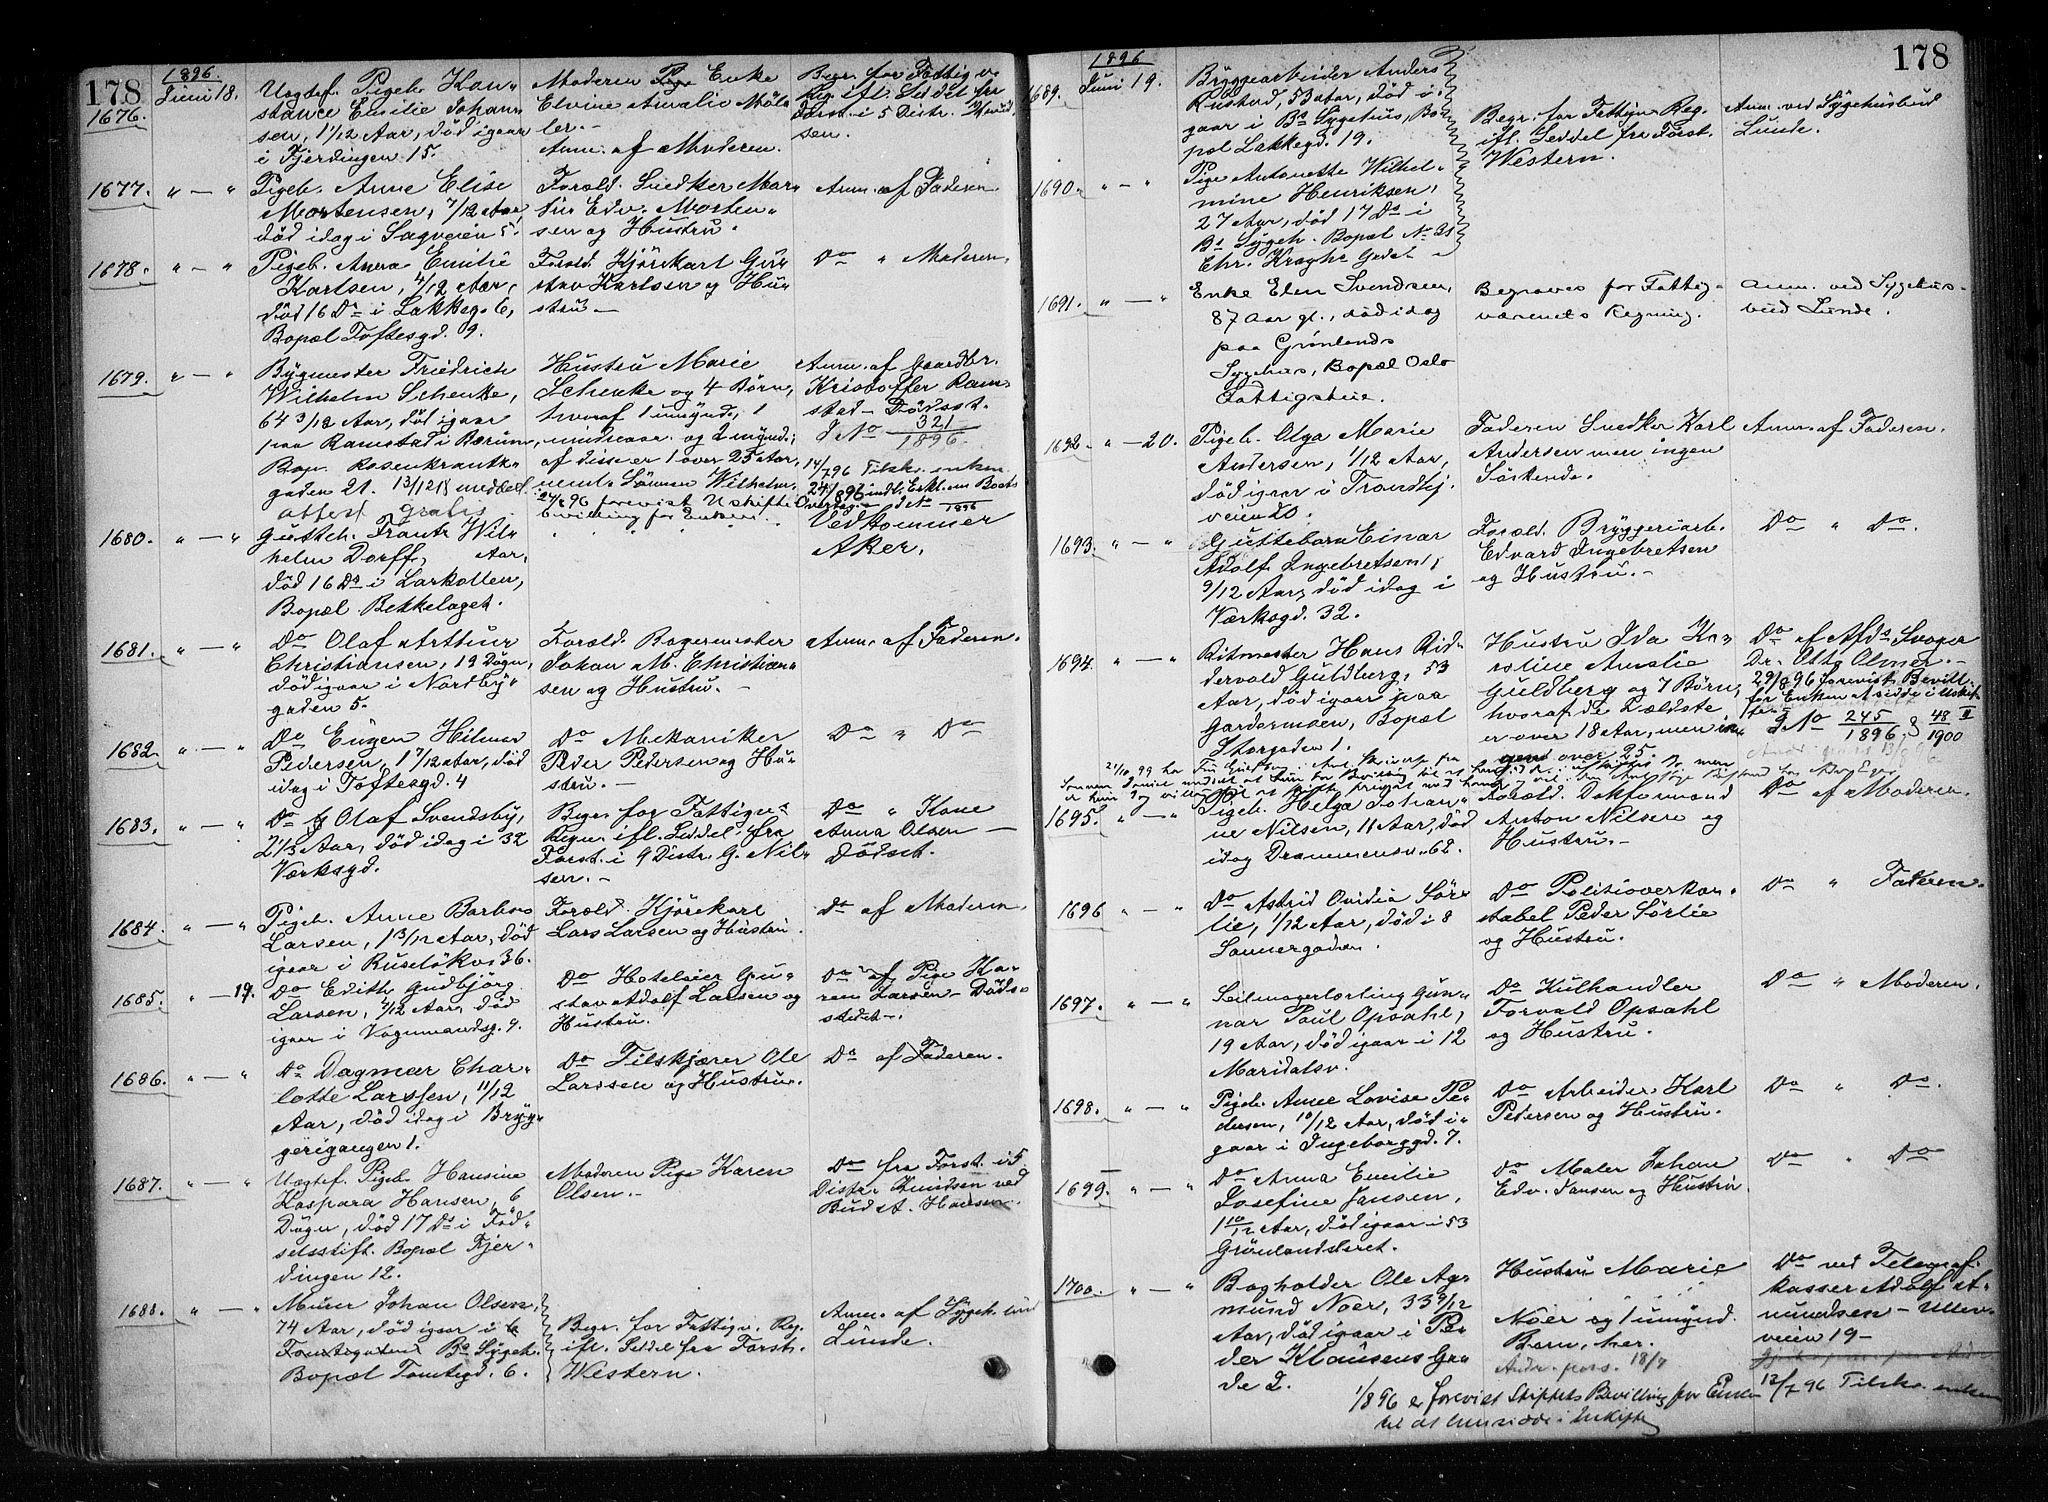 178
1896.
Juni 18.
1676.
Uegtef. Pigeb. Kon-
stance Emilie Johan-
sen, 1 1/12 Aar, død igaar
i Fjerdingen 15.
Moderen Enke
Elvine Amalie Møl-
ler.-
Anm. af Moderen.
Begr. for Fattigv.
Reg. ifl. Seddel fra
Forst. i 5 Distr.
1677. " — "
Pigeb. Anne Elise
Mortensen, 7/12 Aar,
død idag i Sagveien 5.
Foræld. Snedker Mar-
tin Edv. Morten-
sen og Hustru.
Anm. af Faderen
1678. " — "
Pigeb. Anna Emilie
Karlsen, 4/12 Aar,
død 16 Ds i Lakkeg. 6,
Bopæl Toftesgd. 9.
Foræld. Kjørekarl Gu-
stav Karlsen og Hu-
stru —
Do " Moderen.
1679. " — "
Bygmester Friedrich
Wilhelm Schenke,
64 3/12 Aar, død igaar
paa Ramstad i Bærum,
Bop. Rosenkrantz-
gaden 21. 13/12 18 meddelt
attest gratis
Hustru Marie
Schenke og 4 Børn,
hvoraf 1 umynd., 1
mindreaar. og 2 mynd.;
af disse er 1 over 25 Aar,
neml. Sønnen Wilhelm.
/8 96 forevist Uskifte-
bevilling for Enken.
Anm. af Gaardbr.
Kristoffer Ram-
stad — Dødsst.
J No 321/1896.
14/7 96 Tilskr. enken
24/8 96 indl. Erkl. om Boets
Overtag.
1680. " — "
Gutteb. Frantz Wil-
helm Dorff, Aar,
død 16 Ds i Larkollen,
Bopæl Bekkelaget.
Vedkommer
Aker.
1681. " — "
Do Olaf Arthur
Christiansen, 19 Døgn,
død igaar i Nordby-
gaden 5.
Foræld. Bagermester
Johan M. Christian-
sen og Hustru. —
Anm. af Faderen.
1682 " — "
Do Eugen Hilmar
Pedersen, 1 7/12 Aar, død
idag i Toftesgd. 4
Do Mekaniker
Peder Pedersen og Hu-
stru. —
Do " Do
1683. " — "
Do Olaf Svendsby,
2 1/3 Aar, død idag i 32
Værksgd.
Begr. for Fattigv.
Regn. ifl. Seddel fra
Forst. i 9 Distr. G. Nil-
sen. —
Do " Kone
Anna Olsen —
Dødsst.
1684. " — "
Pigeb. Anne Barbra
Larsen, 1 3/12 Aar, død
igaar i Ruseløkv. 36.
Foræld. Kjørekarl
Lars Larsen og Hustru.
Do af Moderen
1685. " — 19.
Do Edith Gudbjørg
Larsen, 4/12 Aar, død
igaar i Vognmandsg. 9.
Do Hotelseier Gu-
stav Adolf Larsen og
Hustru.
Do af Pige Ka-
ren Larsen — Døds-
stedet —.
1686. " — "
Do Dagmar Char-
lotte Larssen, 11/12
Aar, død idag i Bryg-
gerigangen 1.
Do Tilskjærer Ole
Larssen og Hustru.
Do af Faderen.
1687. " — "
Uegtef. Pigeb. Hansine
Kaspara Hansen, 6
Døgn, død 17 Ds i Fød-
selsstift. Bopæl Fjer-
dingen 12.
Moderen Pige Karen
Olsen. —
Do fra Forst. i 5
Distr. Knudsen ved
Budst. Hansen
1688. " — "
Murer Johan Olsen,
74 Aar, død igaar i
Bs Sygeh.
Bopæl Tomtegd. 6.
Begr. for Fattigv. Reg.
ifl. Seddel fra Forst.
Western.
Anm. af Sygeh. bud
Lunde.
178
1896
1689. Juni 19.
Bryggearbeider Anders
Rustad, 53 Aar, død i-
gaar i Bs Sygehus, Bo-
pæl Lakkegd. 19.
Begr. for Fattigv. Reg.
ifl. Seddel fra Forst.
Western.
Anm. ved Sygehusbud
Lunde.
1690. " — "
Pige Antonette Wilhel-
mine Henriksen,
27 Aar, død 17 Ds i
Bs Sygeh. Bopæl No 31
Chr. Kroghs Gade
1691. " — "
Enke Elen Svendsen,
87 Aar gl., død idag
paa Grønlands
Sygehus, Bopæl Oslo
Fattigstue.
Begraves for Fattig-
væsenets Regning.
Anm. ved Sygehus-
bud Lunde.
1692. " — 20.
Pigeb. Olga Marie
Andersen, 1/12 Aar,
død igaar i Trondhj.
veien 20.
Faderen Snedker Karl
Andersen men ingen
Søskende.
Anm. af Faderen.
1693. " — "
Guttebarn Einar
Adolf Ingebretsen,
9/12 Aar, død idag i
Værksgd. 32.
Foræld. Bryggeriarb.
Edvard Ingebretsen
og Hustru. —
Do " Do.
1694. " — "
Ritmester Hans Rid-
dervold Guldberg, 53
Aar, død igaar paa
Gardermoen, Bopæl
Storgaden 1.
Hustru Ida Ka-
roline Amalie
Guldberg og 7 Børn,
hvoraf de 2 ældste
er over 18 Aar, men in-
gen over 25.
Do af Afds Svoger
Dr. Otto Olmer. —
29/8 96 forevist Bevill.
for Enken at sidde i Uskif-
te.
J No 245/1896, 48/1900
1695. " — "
Pigeb. Helga Johan-
ne Nilsen, 11 Aar, død
idag Drammensv. 62.
Foræld. Dokformand
Anton Nilsen og
Hustru. —
Do af Moderen.
1696 " — "
Do Astrid Ovidia Sør-
lie, 1/12 Aar, død i 8
Sannergaden.
Do Politioverkon-
stabel Peder Sørlie
og Hustru.
Do " Faderen.
1697. " — "
Seilmagerlærling Gun-
nar Paul Opsahl,
19 Aar, død igaar i 12
Maridalsv.
Do Kulhandler
Torvald Opsahl
og Hustru.
Do " Moderen.
1698. " — "
Pigeb. Anne Lovise Pe-
dersen, 10/12 Aar, død i-
gaar i Ingeborggd. 7.
Do Arbeider Karl
Pedersen og Hustru.
Do " Do.
1699. " — "
Do Anna Emilie
Josefine Jansen,
1 10/12 Aar, død igaar i 53
Grønlandsleret.
Do Maler Johan
Edv. Jansen og Hustru.
Do " Do
1700. " — "
Bogholder Ole Ag-
mund Noer, 33 9/12
Aar, død igaar i Pe-
der Klausens Ga-
de 2.
Hustru Marie
Noer og 1 umynd.
Barn, her.
Andr. pors. 18/7
1/8 96 er forevist Stiftets Bevilling for Enken
til at hensidde i Uskifte
Do ved Telegraf-
kasser Adolf A-
mundsen — Ullev.
veien 19 —
13/7 96 Tilskr. enken